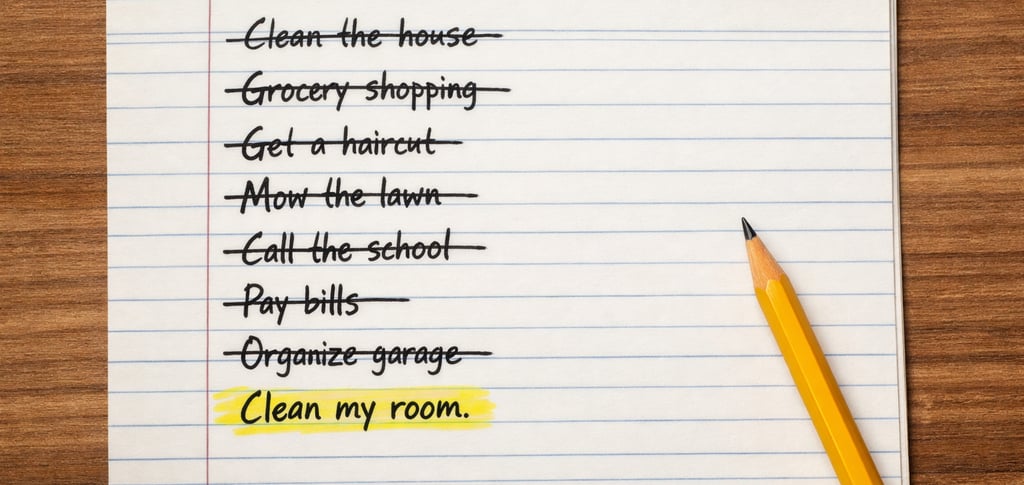 Clean the house
Grocery shopping
Get a haircut
Mow the lawn
Call the school
Pay bills
Organize garage
Clean my room.